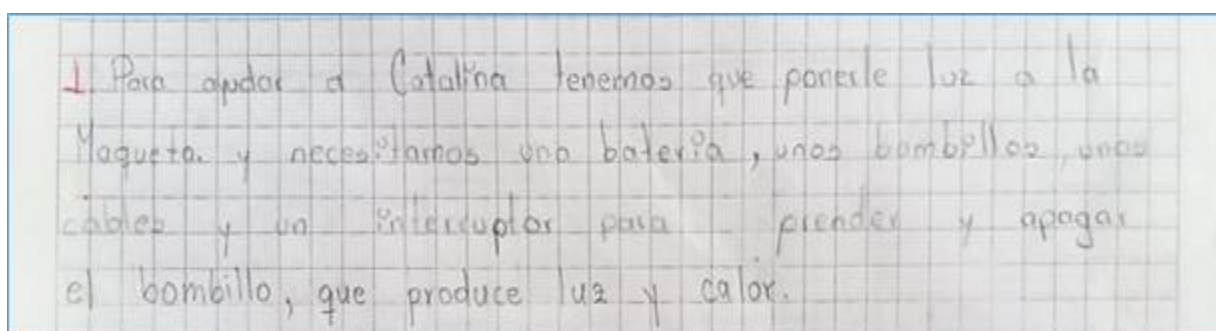 1. Para ayudar a Catalina tenemos que ponerle luz a la
Maqueta. y necesitamos una batería, unos bombillos, unos
cables y un interruptor para prender y apagar
el bombillo, que produce luz y calor.